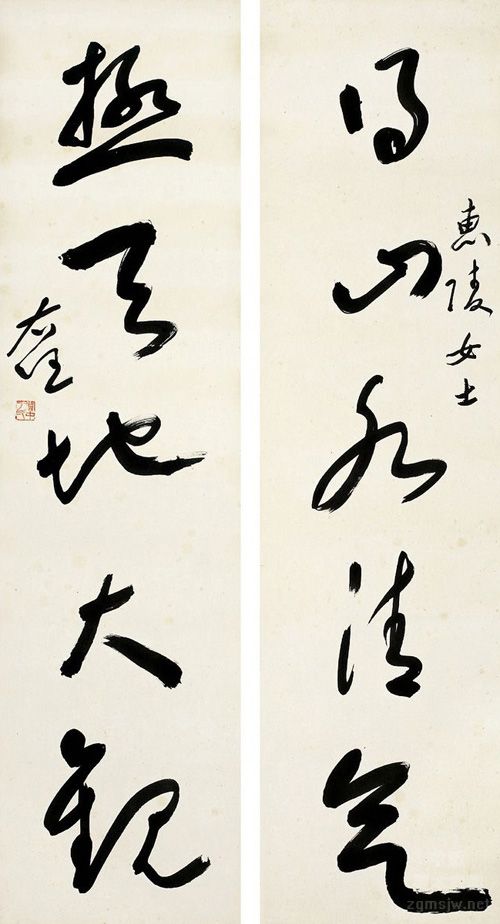 得山水清气
惠陵女士
极天地大观
右任
zqmsjw.net